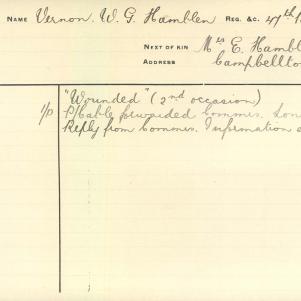 NAME Vernon. W. G. Hamblen REG. &C. 47th
NEXT OF KIN Mrs E. Hambl
ADDRESS Campbellto
"Wounded" (2nd occasion)
P/Cable forwarded Commrs. Lon
Reply from Commrs. Information